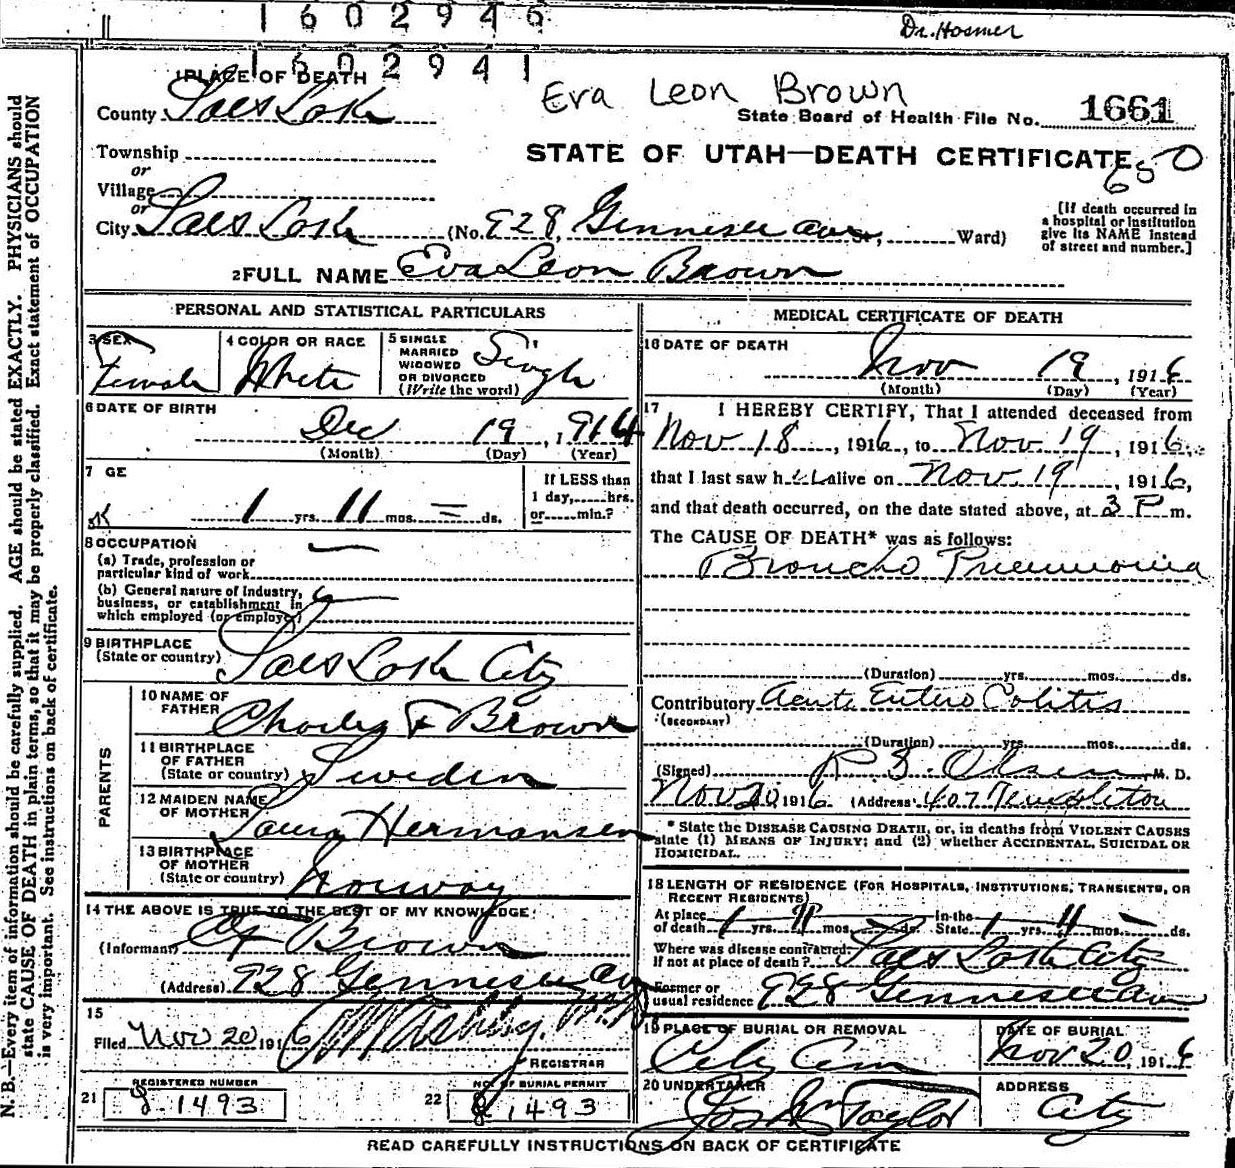 1602946
Dr. Hosmer
1602941
1 PLACE OF DEATH
Eva Leon Brown
County Salt Lake
State Board of Health File No. 1661
Township
STATE OF UTAH—DEATH CERTIFICATE
or
Village
650
or
City Salt Lake (No. 928, Gennessee ave St., Ward)
[If death occurred in a hospital or institution give its NAME instead of street and number.]
2 FULL NAME Eva Leon Brown
PERSONAL AND STATISTICAL PARTICULARS
3 SEX Female
4 COLOR OR RACE White
5 SINGLE MARRIED WIDOWED OR DIVORCED (Write the word) Single
6 DATE OF BIRTH
Dec 19, 1914
(Month) (Day) (Year)
7 GE
1 yrs. 11 mos. — ds.
If LESS than 1 day, hrs. or min.?
8 OCCUPATION —
(a) Trade, profession or particular kind of work
(b) General nature of Industry, business, or establishment in which employed (or employer)
9 BIRTHPLACE (State or country) Salt Lake City
PARENTS
10 NAME OF FATHER Charley F Brown
11 BIRTHPLACE OF FATHER (State or country) Sweden
12 MAIDEN NAME OF MOTHER Laura Hermansen
13 BIRTHPLACE OF MOTHER (State or country) Norway
14 THE ABOVE IS TRUE TO THE BEST OF MY KNOWLEDGE:
(Informant) Brown
(Address) 928 Gennessee ave
15
Filed Nov 20 1916
REGISTRAR
REGISTERED NUMBER
21 1493
NO. OF BURIAL PERMIT
22 1493
MEDICAL CERTIFICATE OF DEATH
16 DATE OF DEATH
Nov 19, 1916
(Month) (Day) (Year)
17 I HEREBY CERTIFY, That I attended deceased from
Nov 18, 1916, to Nov 19, 1916,
that I last saw her alive on Nov. 19, 1916,
and that death occurred, on the date stated above, at 3 P m.
The CAUSE OF DEATH* was as follows:
Broncho Pneumonia
(Duration) yrs. mos. ds.
Contributory Acute Entero Colitis
(SECONDARY)
(Duration) yrs. mos. ds.
(Signed) Olsen, M. D.
Nov 20 1916 (Address) 407 Templeton
* State the DISEASE CAUSING DEATH, or, in deaths from VIOLENT CAUSES
state (1) MEANS OF INJURY; and (2) whether ACCIDENTAL, SUICIDAL OR
HOMICIDAL.
18 LENGTH OF RESIDENCE (FOR HOSPITALS, INSTITUTIONS, TRANSIENTS, OR RECENT RESIDENTS)
At place of death 1 yrs. 11 mos. — ds. In the State 1 yrs. 11 mos. — ds.
Where was disease contracted, If not at place of death? Salt Lake City
Former or usual residence 928 Gennessee ave
19 PLACE OF BURIAL OR REMOVAL City Cem
DATE OF BURIAL Nov 20, 1916
20 UNDERTAKER Jos Wm Taylor
ADDRESS City
READ CAREFULLY INSTRUCTIONS ON BACK OF CERTIFICATE
N. B.—Every item of information should be carefully supplied. AGE should be stated EXACTLY. PHYSICIANS should
state CAUSE OF DEATH in plain terms, so that it may be properly classified. Exact statement of OCCUPATION
is very important. See instructions on back of certificate.